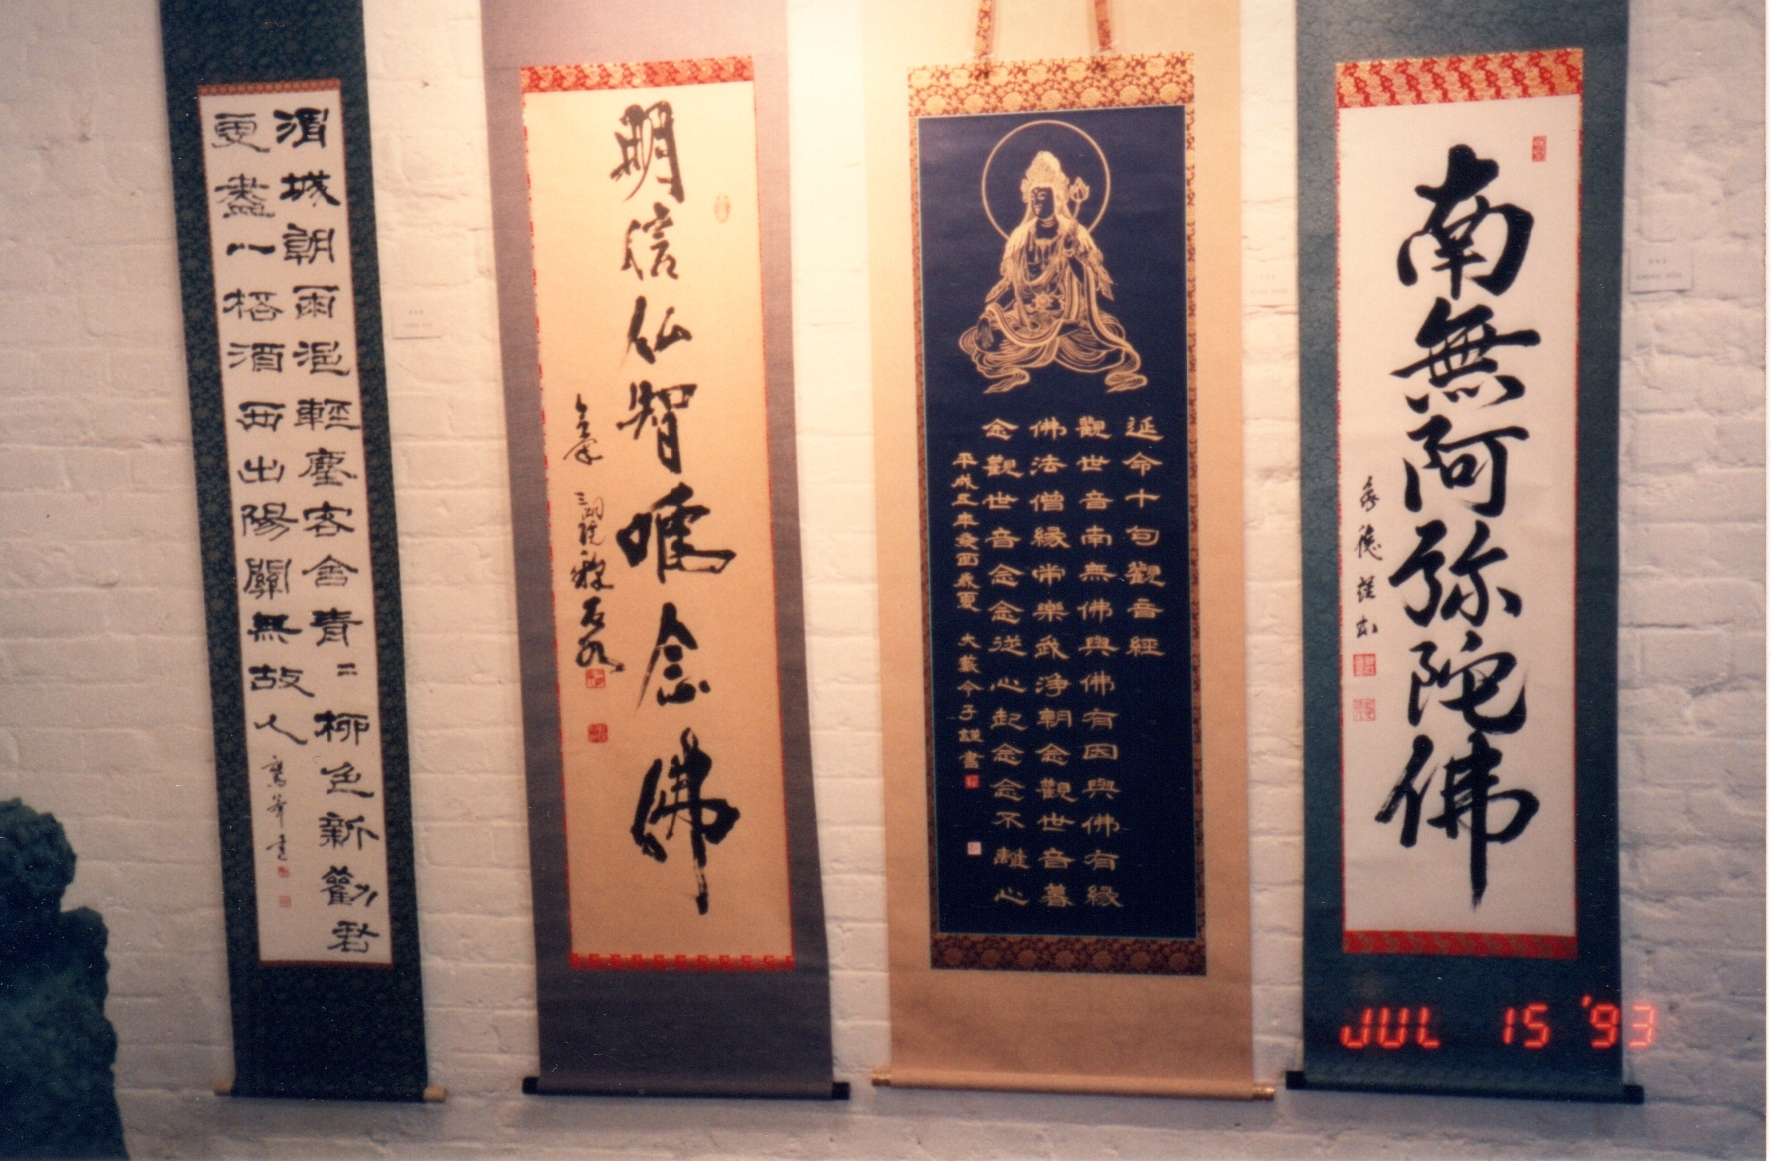 渭城朝雨浥輕塵客舍青〻柳色新勸君
更盡一桮酒西出陽關無故人
明信仏智唯念佛
延命十句觀音經
觀世音南無佛與佛有因與佛有緣
佛法僧緣常樂我淨朝念觀世音暮
念觀世音念念從心起念念不離心
平成五年癸酉夏 大藪今子謹書
南無阿弥陀佛
JUL 15 '93